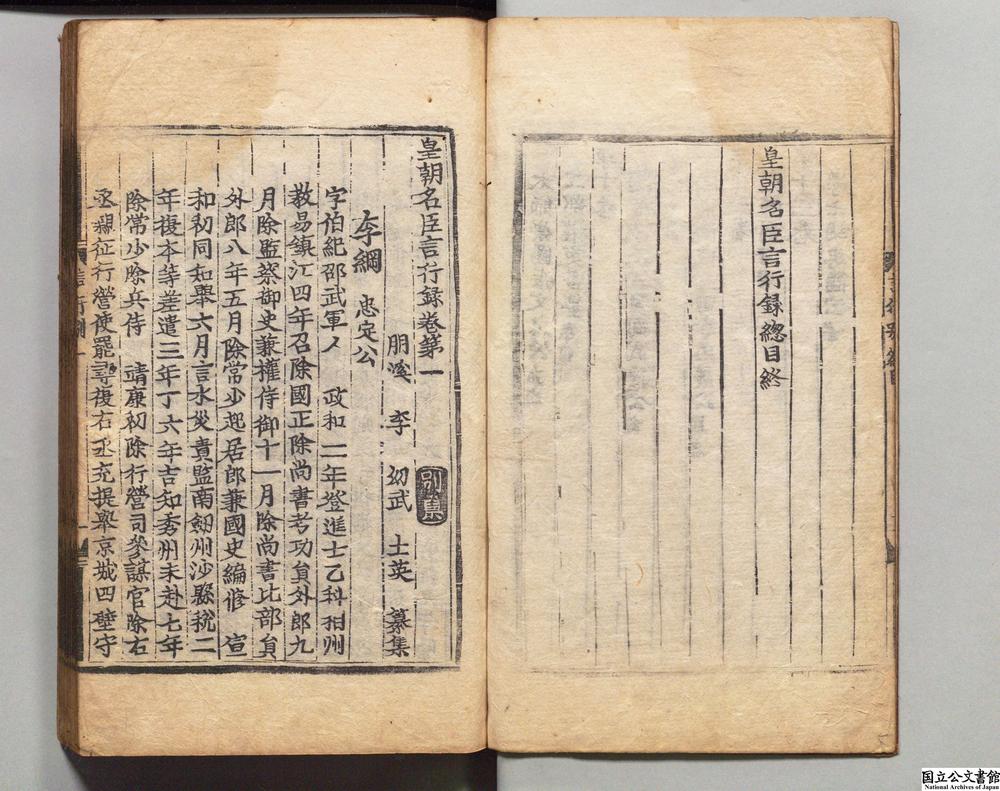 皇朝名臣言行録總目終
皇朝名臣言行録卷第一
別集
朋溪 李 幼武 士英 纂集
李綱 忠定公
字伯紀邵武軍人 政和二年登進士乙科相州
教易鎮江四年召除國正除尚書考功員外郎九
月除監察御史兼權侍御十一月除尚書比部員
外郎八年五月除常少起居郎兼國史編修 宣
和初同知舉六月言水災責監南劒州沙縣税二
年復本等差遣三年丁六年吉知秀州未赴七年
除常少除兵侍 靖康初除行營司參謀官除右
丞親征行營使罷尋復右丞充提舉京城四壁守
国立公文書館
National Archives of Japan